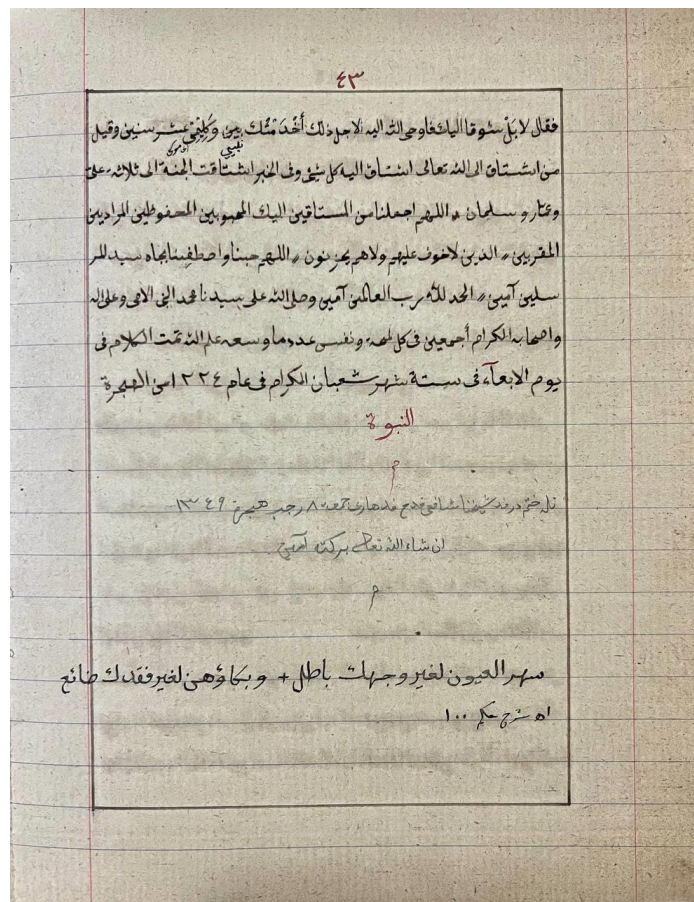 ٤٣
فقال لا بَلْ شوقا اليك فاوحى الله اليه لاجل ذلك أَخْدَمْتُك نبيى وَكَلِيْمِيْ عشر سنين وقيل
نبيي
من اشتاق الى الله تعالى اشتاق اليه كل شيء وفى الخبر اشتاقت الجنة الى ثلاثة على
وعمّار و سلمان، اللهم اجعلنا من المستاقين اليك المحبوبين المحفوظين المرادين
المقربين، الذين لاخوف عليهم ولاهم يحزنون، اللهم حبنا واصطفينا بجاه سيد المر
سلين آمين، الحمد للّٰه رب العالمين آمين وصلى الله على سيدنا محمد النبي الامي وعلى اله
واصحابه الكرام أجمعين فى كل لمحة ونفس عدد ما وسعه علم الله تمت الكلام فى
يوم الابعآء فى ستة شهر شعبان الكرام فى عام ٢٢٤ ١من الهجرة
النبوة
م
تله ختم در فد شيخنا شافعى قدح فد هارى جمعة ٨ رجب هجرة ١٣٤٩
ان شاء الله تعالى بركت آمين
م
سهر العيون لغير وجهك باطل + وبكاؤهن لغير فقدك ضائع
اه شرح حكم ١٠٠